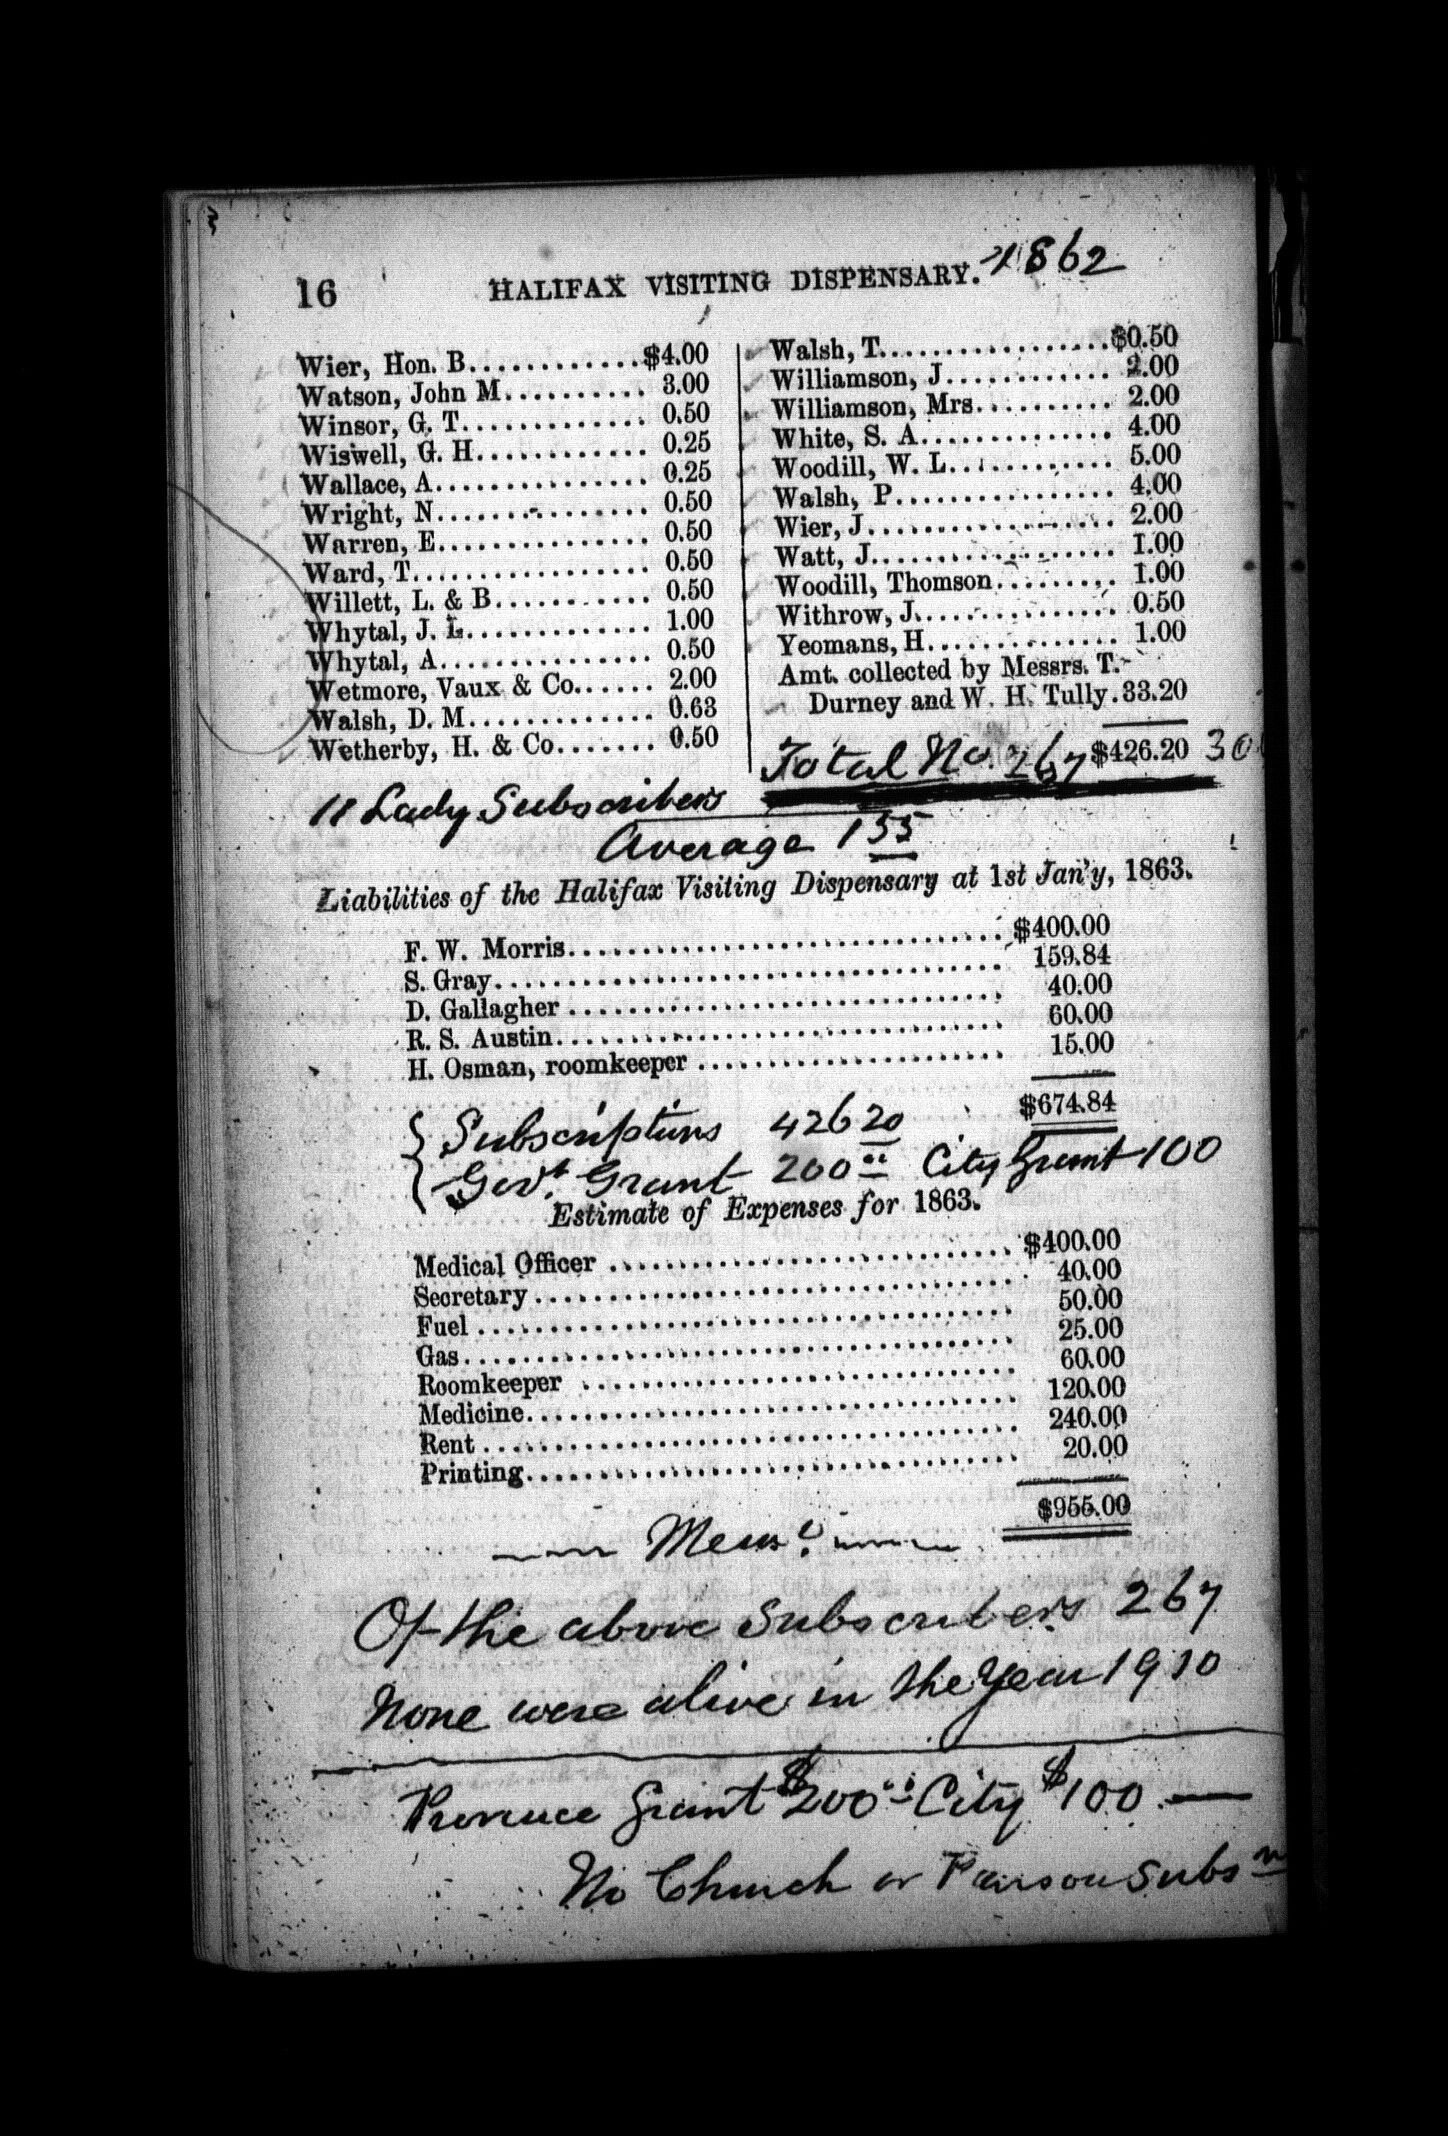 16 HALIFAX VISITING DISPENSARY. 1862
Wier, Hon. B............$4.00
Watson, John M.......... 3.00
Winsor, G. T............. 0.50
Wiswell, G. H............ 0.25
Wallace, A............... 0.25
Wright, N............... 0.50
Warren, E............... 0.50
Ward, T................. 0.50
Willett, L. & B........... 0.50
Whytal, J. L............. 1.00
Whytal, A............... 0.50
Wetmore, Vaux & Co...... 2.00
Walsh, D. M............. 0.63
Wetherby, H. & Co....... 0.50
Walsh, T.................$0.50
Williamson, J............ 2.00
Williamson, Mrs.......... 2.00
White, S. A.............. 4.00
Woodill, W. L............ 5.00
Walsh, P................ 4.00
Wier, J.................. 2.00
Watt, J.................. 1.00
Woodill, Thomson......... 1.00
Withrow, J............... 0.50
Yeomans, H.............. 1.00
Amt. collected by Messrs. T.
Durney and W. H. Tully. 33.20
Total No. 267 $426.20
11 Lady Subscribers
Average 1 55
Liabilities of the Halifax Visiting Dispensary at 1st Jan'y, 1863.
F. W. Morris..............................$400.00
S. Gray................................... 159.84
D. Gallagher.............................. 40.00
R. S. Austin............................... 60.00
H. Osman, roomkeeper...................... 15.00
$674.84
Subscriptions 426 20
Govt. Grant 200 " City Grant 100
Estimate of Expenses for 1863.
Medical Officer............................$400.00
Secretary................................. 40.00
Fuel..................................... 50.00
Gas...................................... 25.00
Roomkeeper............................... 60.00
Medicine.................................. 120.00
Rent..................................... 240.00
Printing.................................. 20.00
$955.00
Of the above Subscribers 267
None were alive in the Year 1910
Province Grant $200 " City $100 —
No Church or Parson Subsn